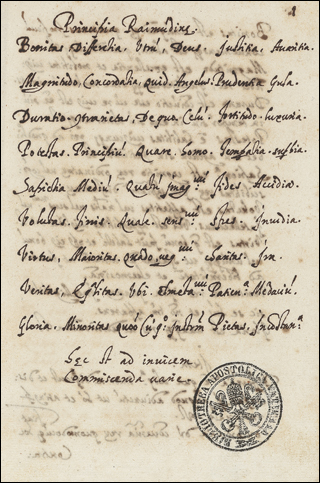 1
Principia Raimundi
Bonitas Differtia. Utrū, Deus. Justitia. Avaritia.
Magnitudo, Concordatia, Quid. Angelus. Prudentia Gula.
Duratio. 9trarietas, De quo. Celū. Fortitudo. luxuria.
Potestas. Principiū. Quare. homo. Temperātia. supbia.
Sapiētia Mediū. Quātū Imag. Fides Accidia.
Volūtas. Finis. Quale. sens. Spes. Invidia.
Virtus, Maioritas. Quādo, veg. charitas. Ira.
Veritas, Eqlitas. Ubi. elmeta. Patien.ª Mēdaciū.
Gloria. Minoritas quō Cū q; Pietas,
hęc st ad invicem
Commiscenda varie.
BIBLIOTHECA APOSTOLICA VATICANA